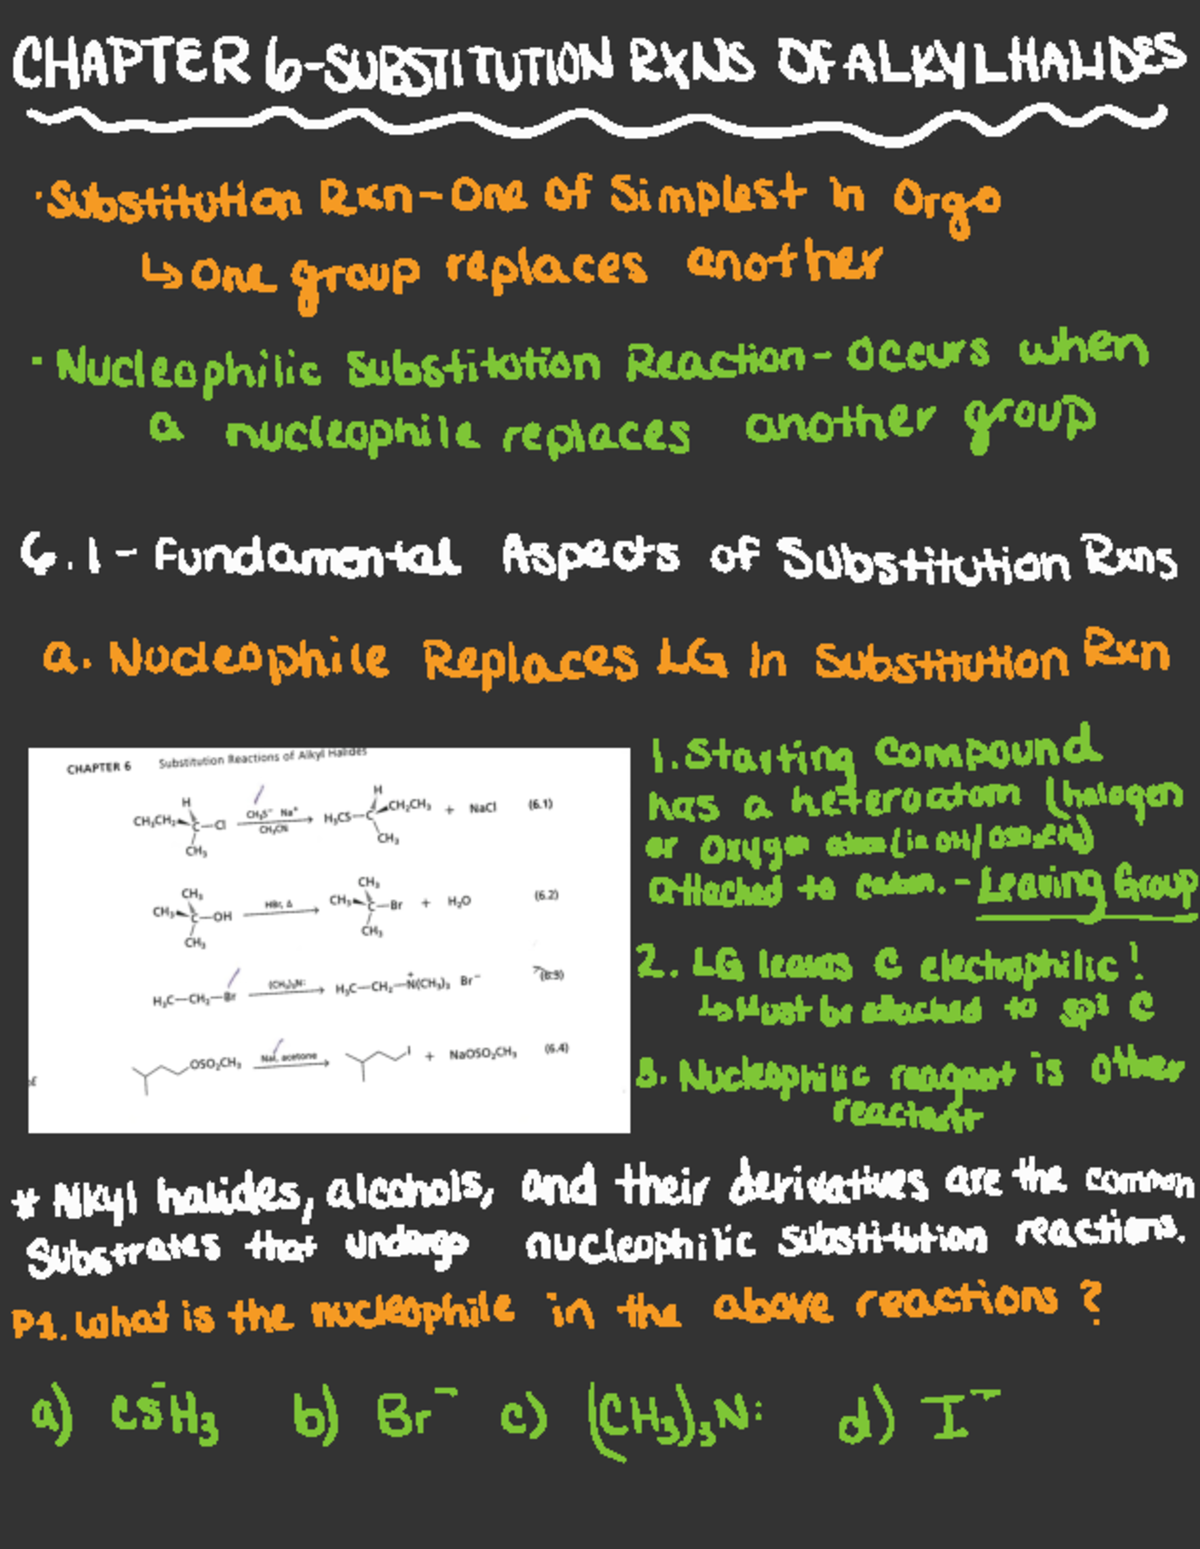 CHAPTER 6-SUBSTITUTION RXNS OF ALKYL HALIDES
·Substitution Rxn-One of Simplest in Orgo
↳ One group replaces another
·Nucleophilic Substitution Reaction- Occurs when
a nucleophile replaces another group
6.1- Fundamental Aspects of Substitution Rxns
a. Nucleophile Replaces LG In Substitution Rxn
CHAPTER 6 Substitution Reactions of Alkyl Halides
H
CH₃CH₂ C—Cl
CH₃
CH₃S⁻ Na⁺
CH₃CN
H₃CS—C
H
CH₂CH₃
CH₃
+ NaCl (6.1)
CH₃
CH₃ C—OH
CH₃
HBr, Δ
CH₃
CH₃ C—Br + H₂O (6.2)
CH₃
H₃C—CH₂—Br (CH₃)₃N: H₃C—CH₂—N⁺(CH₃)₃ Br⁻ (6.3)
OSO₂CH₃ NaI, acetone I + NaOSO₂CH₃ (6.4)
1. Starting compound
has a heteroatom (halogen
or Oxygen atom (in OH/
attached to carbon. - Leaving Group
2. LG leaves C electrophilic!
↳ Must be attached to sp³ C
3. Nucleophilic reagant is other
reactant
* Alkyl halides, alcohols, and their derivatives are the common
Substrates that undergo nucleophilic substitution reactions.
P1. What is the nucleophile in the above reactions?
a) CS⁻H₃ b) Br⁻ c) (CH₃)₃N: d) I⁻